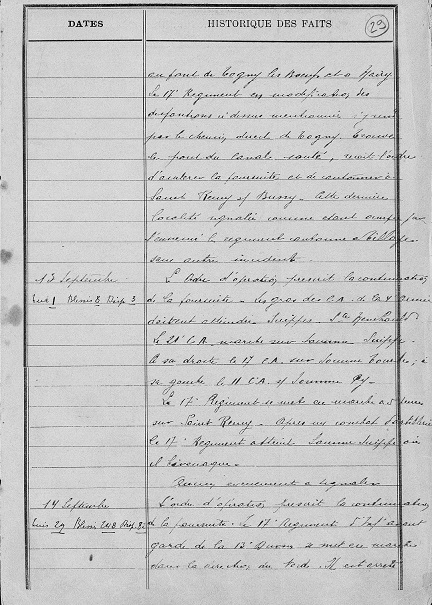 DATES
HISTORIQUE DES FAITS
29
au pont de Togny les Bœufs et a Mairy
le 17e Régiment en modification des
dispositions ci dessus mentionnées s'y rend
par le chemin direct de Togny. Trouve
le pont du canal sauté, reçoit l'ordre
d'arrêter la poursuite et de cantonner à
Saint Remy s/ Bussy. Cette dernière
localité signalée comme étant occupée par
l'ennemi le régiment cantonne à
sans autre incident.
13 Septembre
L'Ordre d'opération prescrit la continuation
Tués 1 Blessés 8 Disp. 3
de la poursuite. Les gros des C.A. de la 4e Armée
doivent atteindre Suippes. Ste Menehould
Le 21e C.A. marche sur Somme Suippe.
A sa droite le 17 C.A. sur Somme Tourbe, à
sa gauche le 11 C.A. s/ Somme Py.
Le 17e Régiment se met en marche à 5 heures
sur Saint Remy. Après un combat d'artillerie
le 17e Régiment atteint Somme Suippe où
il bivouaque.
Aucun évènement à signaler
14 Septembre
L'ordre d'opération prescrit la continuation
Tués 29 Blessés 248 Disp.
de la poursuite. Le 17e Régiment d'Inf. avant
garde de la 13e Division se met en marche
dans la direction du Nord. Il est arrêté